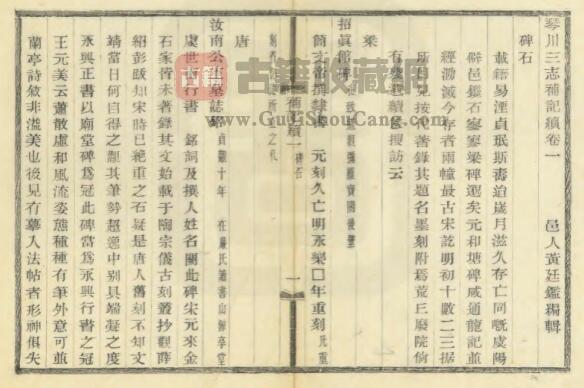 琴川三志補記續卷一
邑人黃廷鑑琴六輯
碑石
載籍易湮貞珉斯壽迨歲月滋久存亡同慨虞陽
僻邑鑑石寥寥梁碑遐矣元和塘碑咸通龍記並
經泐滅今存者雨幢最古宋訖明初十數二三據
所目見按代著錄其題名墨刻附焉荒三廢院倘
有
續搜訪云
梁
招眞
簡文帝撰隸書 元刻久亡明永樂□年重刻
補
續一
碑石
一
唐
汝南公主墓誌銘 貞觀十年
虞世南行書 銘詞及撰人姓名闕此碑宋元來金
石家皆未著錄其文始載于陶宗儀古刻叢抄觀薛
紹彭跋知宋時已絶重之石疑是唐人舊刻不知文
靖當日何自得之觀其筆勢超逸中别具端凝之度
永興正書以廟堂碑爲冠此碑當爲永興行書之冠
王元美云蕭散虛和風流姿態種種有筆外意可並
蘭亭詩敘非溢美也後見有摹入法帖者形神俱失
古籍收藏网
www.GuJiShouCang.com